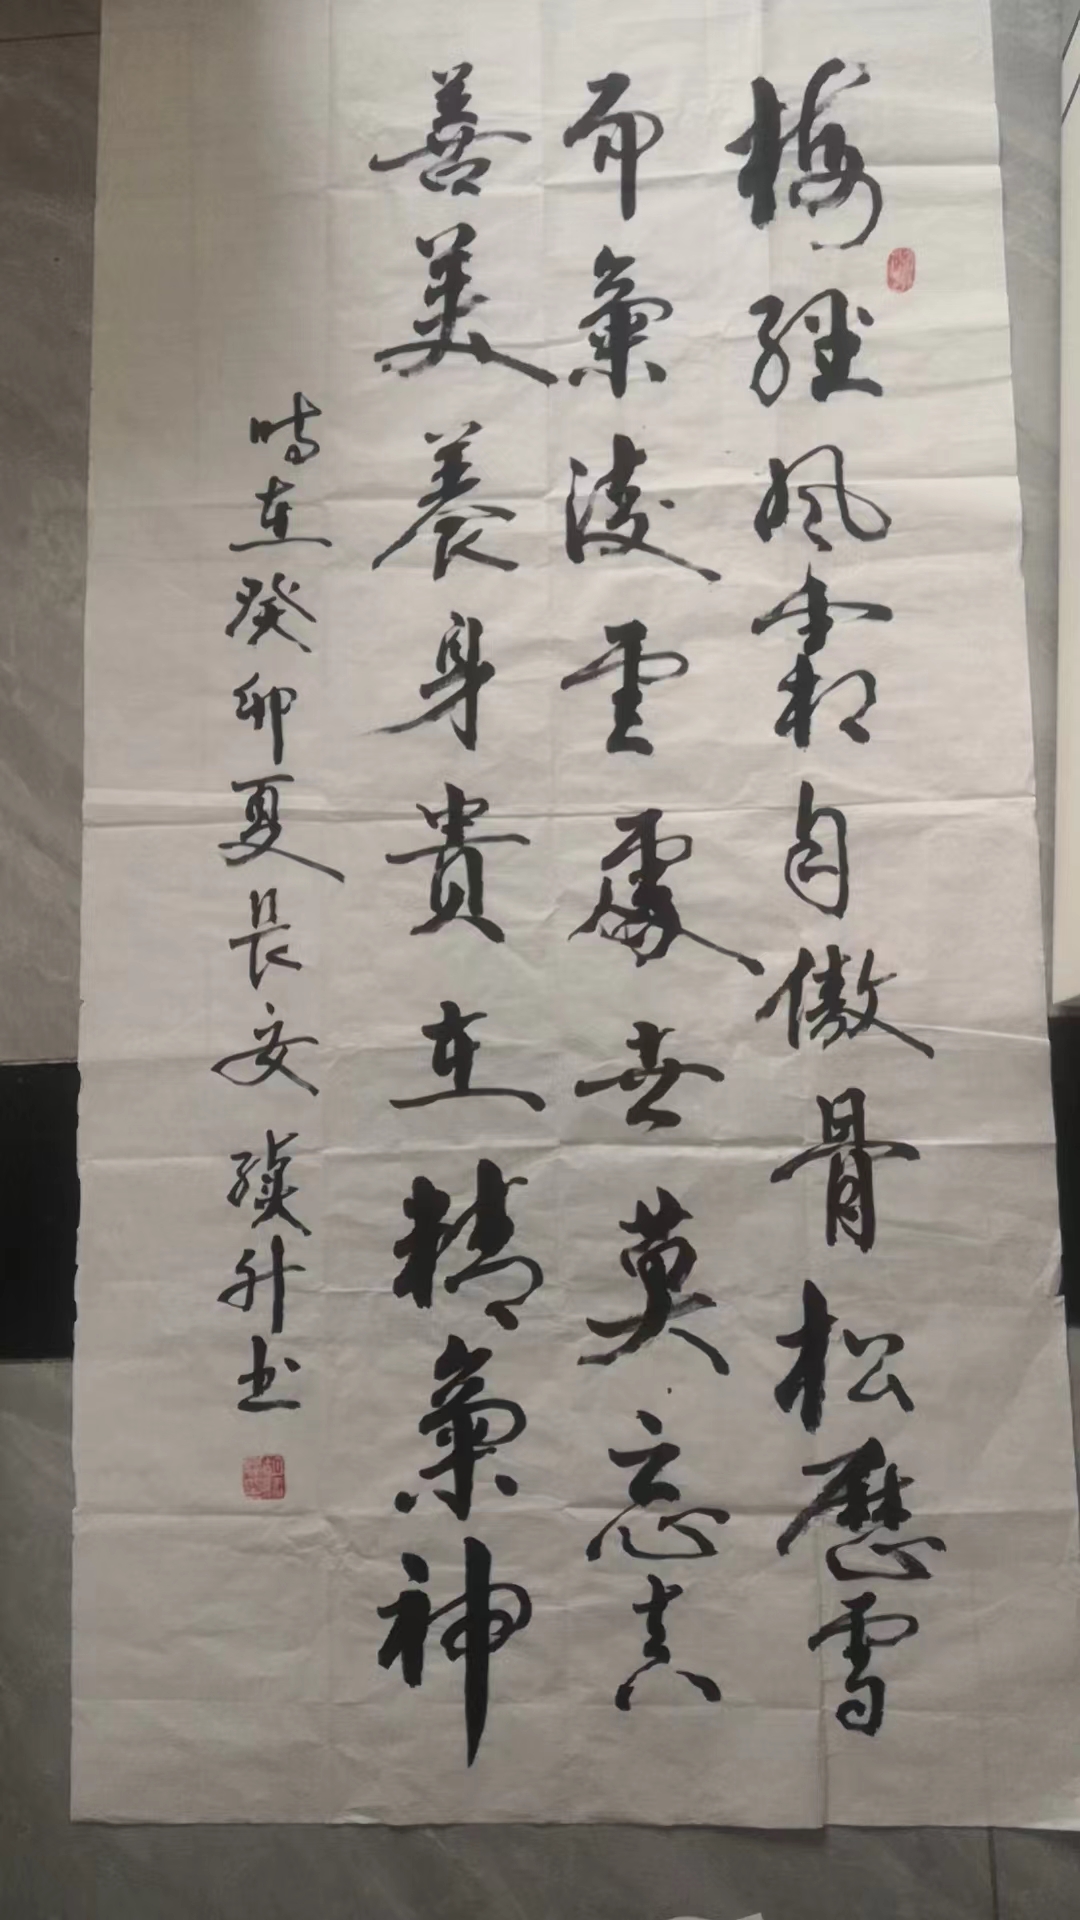 梅經風霜自傲骨松歷雪
而氣凌雲處世莫忘真
善美養身貴在精氣神
時在癸卯夏長安續升书